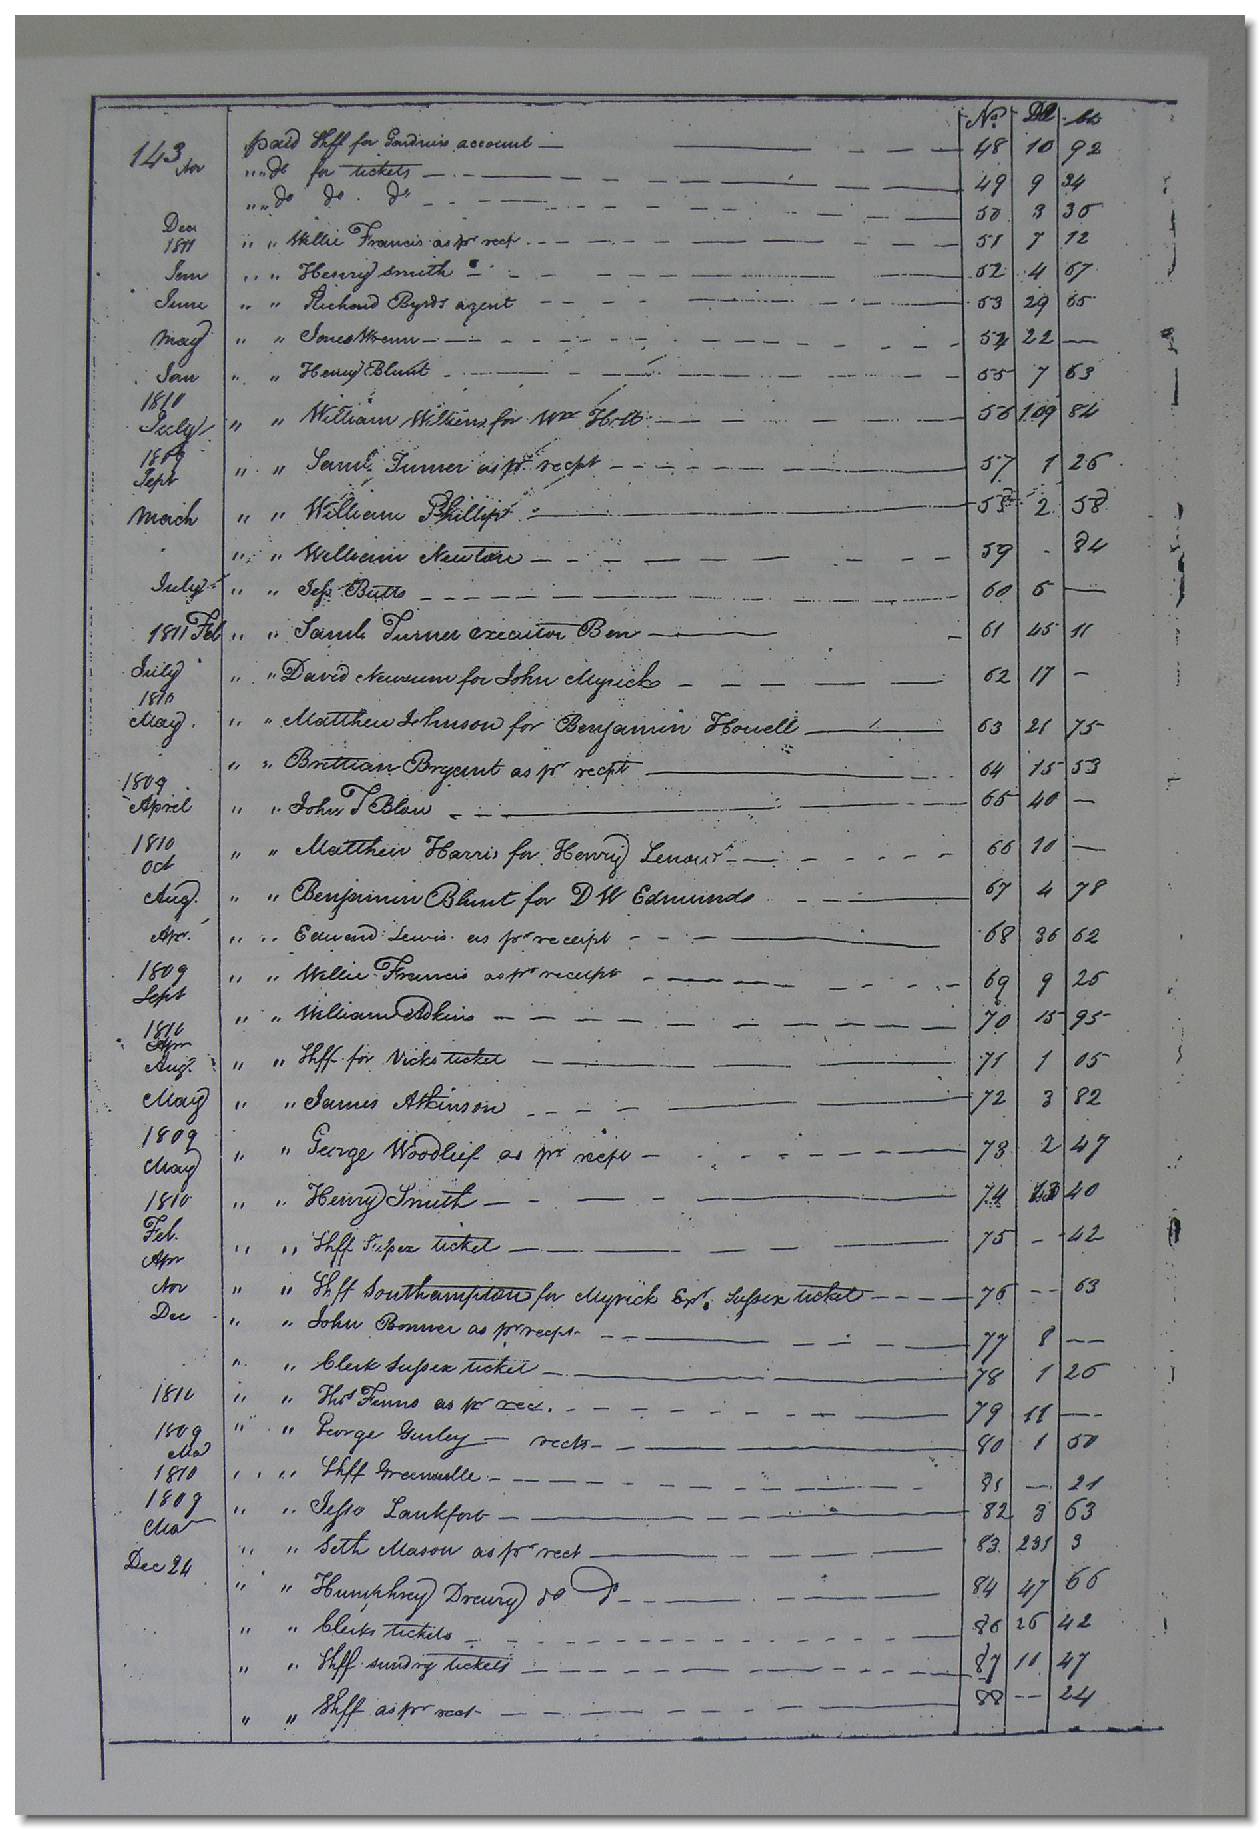 No. Dl Cts
143 Nov paid Shff for Gardners account 48 10 92
" " do for tickets 49 9 34
" " do do do 50 3 35
Dec
1811 " " Willie Francis as pr rect 51 7 12
Jan " " Henry Smith 52 4 67
June " " Richard Byrds agent 53 29 65
May " " Jones Wrenn 54 22 —
Jan " " Henry Blunt 55 7 63
1810
July " " William Wilkins for Wm Holt 56 109 84
1809
Sept " " Saml. Turner as pr. recpt 57 1 25
March " " William Phillips 58 2 58
" " William Newton 59 - 84
July " " Jess Butts 60 6 —
1811 Feb " " Saml. Turner executor Ben 61 45 11
July " " David Newsum for John Myrick 62 17 -
1810
May " " Matthew Johnson for Benjamin Howell 63 21 75
" " Brittian Bryant as pr recpt 64 15 53
1809
April " " John T Blow 65 40 —
1810
Oct " " Matthew Harris for Henry Lenow 66 10 —
Aug. " " Benjamin Blunt for D W Edmunds 67 4 78
Apr. " " Edward Lewis as pr receipt 68 36 62
1809
Sept " " Willie Francis as pr receipt 69 9 25
1810 " " William Adkins 70 15 95
Apr
Aug. " " Shff for Vicks ticket 71 1 05
May " " James Atkinson 72 3 82
1809
May " " George Woodlief as pr recpt 73 2 47
1810 " " Henry Smith 74 40
Feb.
Apr " " Shff Sussex ticket 75 - 42
Nov " " Shff Southampton for Myrick Exr. Sussex ticket 76 -- 63
Dec " " John Bonner as pr recpt 77 8 —
" " Clerk Sussex ticket 78 1 25
1810 " " Thos Fenns as pr rec. 79 11 —
1809 " " George Gurley rects 80 1 50
Ma
1810 " " Shff Greensville 81 — 21
1809
Ma " " Jesse Lankford 82 3 63
Dec 24 " " Seth Mason as pr rect 83 231 3
" " Humphrey Drewry do do 84 47 66
" " Clerks tickets 86 26 42
" " Shff sundry tickets 87 11 47
" " Shff as pr rect 88 -- 24